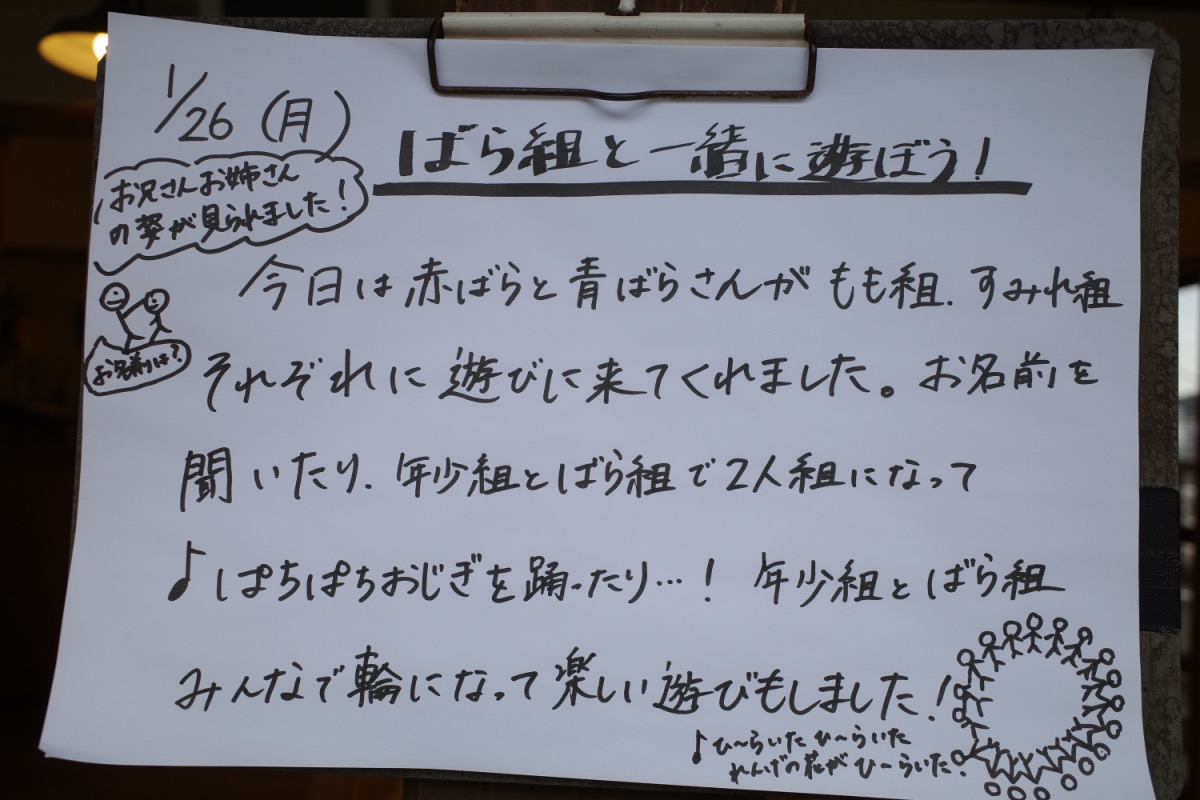 1/26 (月)
ばら組と一緒に遊ぼう!
お兄さんお姉さん
の姿が見られました!
お名前は?
今日は赤ばらと青ばらさんがもも組、すみれ組
それぞれに遊びに来てくれました。お名前を
聞いたり、年少組とばら組で2人組になって
♪ぱちぱちおじぎを踊ったり…! 年少組とばら組
みんなで輪になって楽しい遊びもしました!
♪ひ〜らいたひ〜らいた
れんげの花がひ〜らいた。